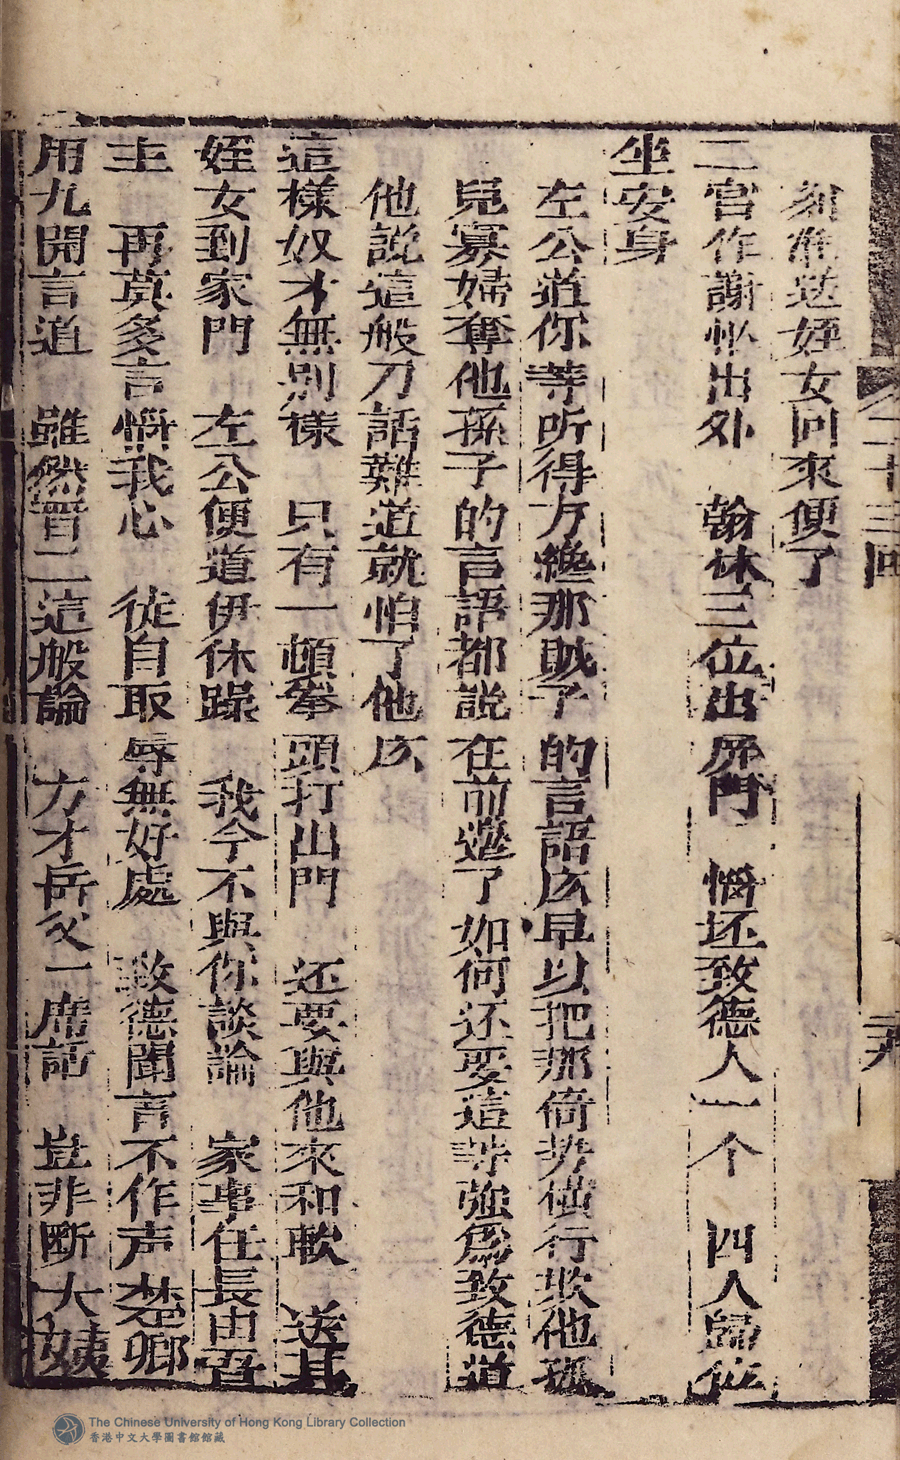 二十三回
勿准送姪女回來便了
二官作謝忙出外 翰林三位出屏門 惱坯致德人一个 四人歸位
坐安身
左公道你等听得方纔那賊子的言語庅早以把那倚势橫行欺他孤
兒寡婦奪他孫子的言語都說在前邊了如何还要這等強爲致德道
他說這般刀話難道就怕了他庅
這樣奴才無別樣 只有一頓拳頭打出門 还要與他來和軟 送其
姪女到家門 左公便道伊休躁 我今不與你談論 家事任長由吾
主 再莫多言惱我心 徒自取辱無好處 致德聞言不作声 楚卿
用九開言道 雖然晋二這般論 方才岳父一席話 豈非断大姨
The Chinese University of Hong Kong Library Collection
香港中文大學圖書館館藏